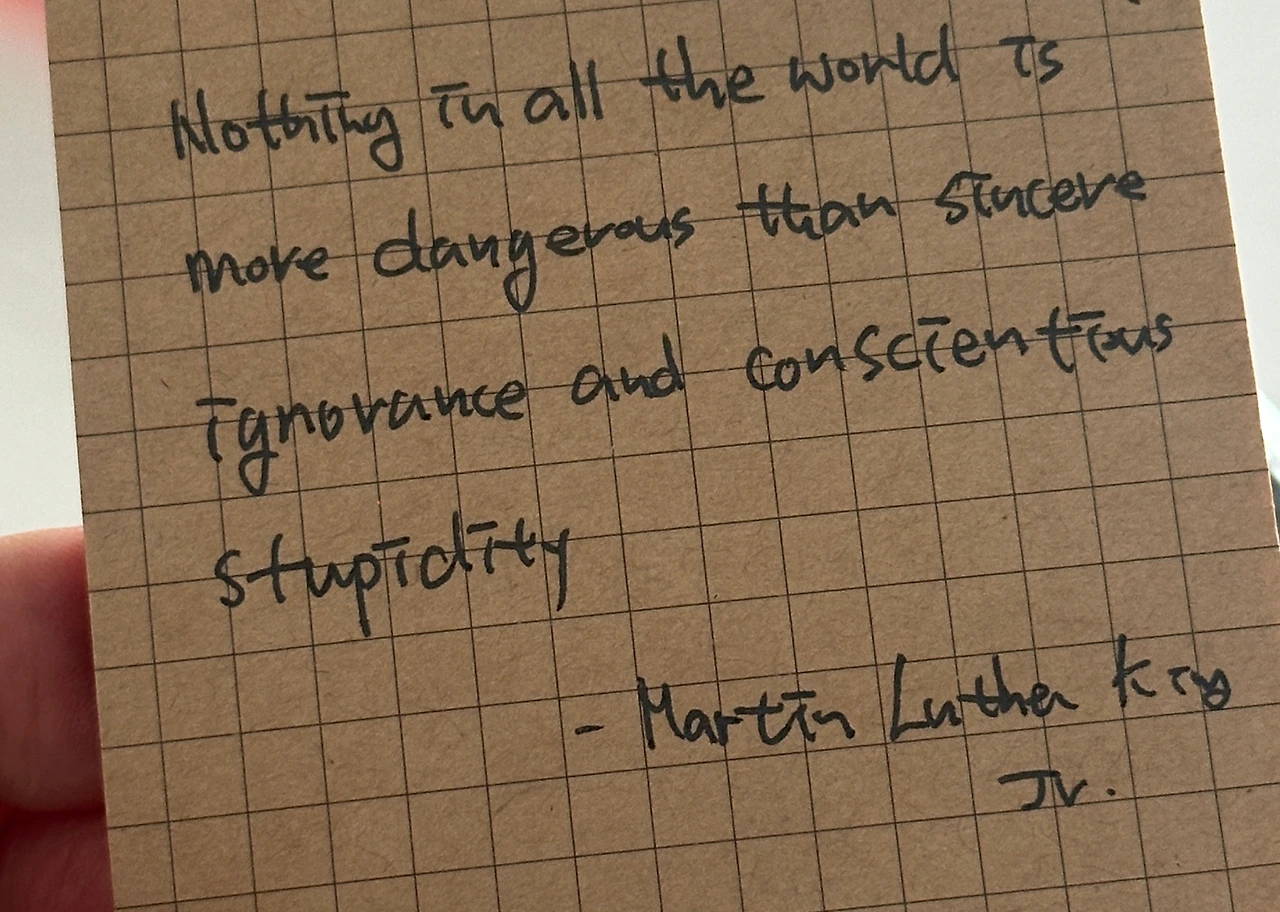 Nothing in all the world is
more dangerous than sincere
ignorance and conscientious
stupidity
- Martin Luther King
Jr.